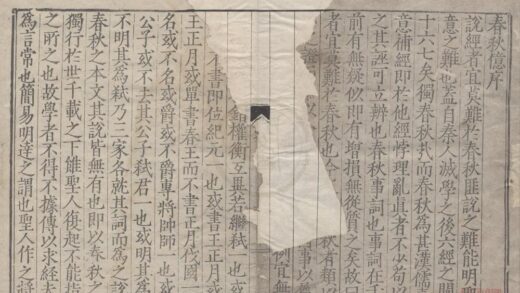 春秋億序
說經者宜莫難於春秋匪說之難能明
意之難也蓋自秦人滅學之後六經之關
十六七矣獨春秋而春秋為甚漢儒
意補經即於他經悖理亂道者不少苟以
之其誣可立辨也春秋事詞也事詞在于
前有無疑似即有增損無從質之矣故曰
者宜莫難於春秋也今秋有類
以事以
例宜無
權衡互異若繼弒一也或
不書即位紀元一也或書王正月或
王正月或單書春王而不書正月伐國一
名或不名或爵或不爵專將帥師一也或
公子或不去其公子弒君一也或明其為
不明其為弒乃三家各就其詞而為之說
春秋之本文其說皆無有也即以春秋之
獨行於世千載之下雖聖人復起不能指
之所之也故學者不得不據傳以求經夫
為言常也簡易明達之謂也聖人作之將